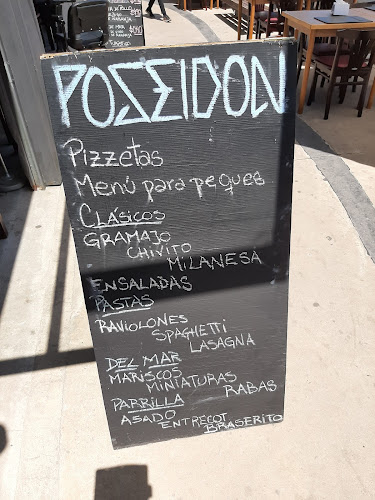 POSEIDON
Pizzetas
Menú para peques
CLÁSICOS
GRAMAJO
CHIVITO
MILANESA
ENSALADAS
PASTAS
RAVIOLONES
SPAGHETTI
LASAGNA
DEL MAR
MARISCOS
MINIATURAS
RABAS
PARRILLA
ASADO
ENTRECOT
BRASERITO